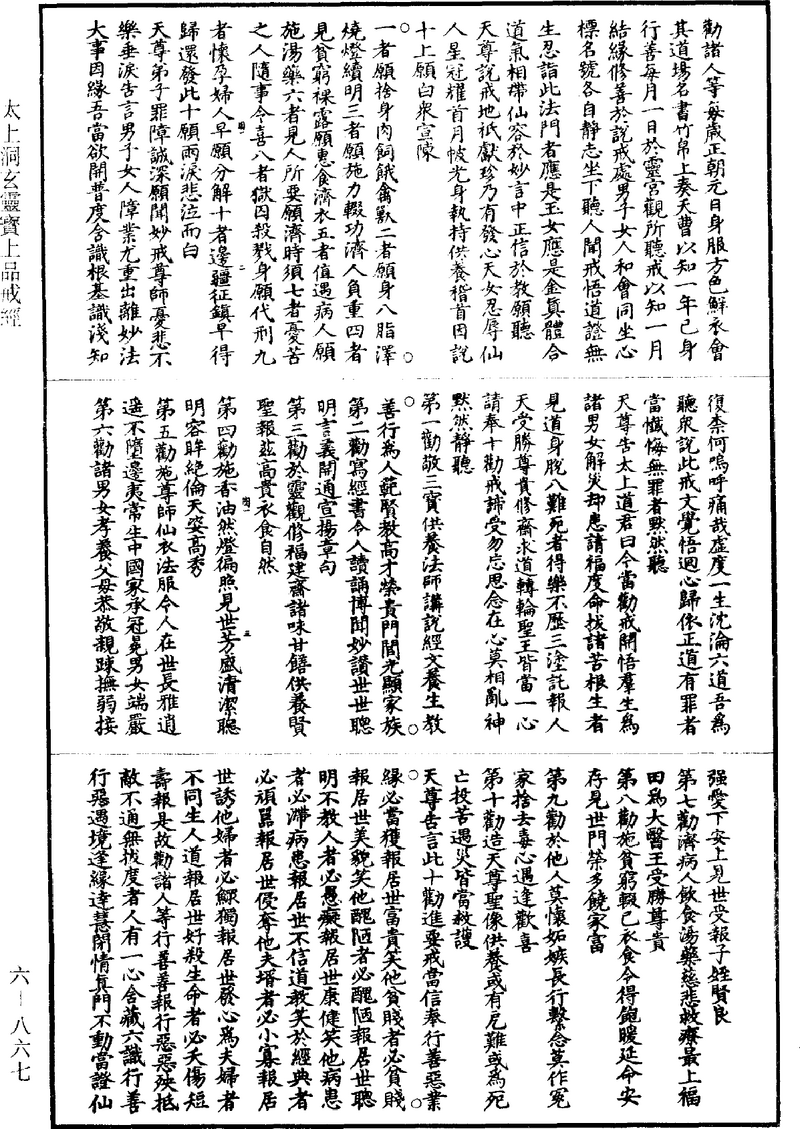 太上洞玄靈寶上品戒經
六-八六七
勸諸人等每歲正朝元日身服方色鮮衣會
其道場名書竹帛上奏天曹以知一年己身
行善每月一日於靈宮觀所聽戒以知一月
結緣修善於說戒處男子女人和會同坐心
標名號各自靜志坐下聽人聞戒悟道證無
生忍詣此法門者應是玉女應是金真體合
道氣相帶仙容於妙言中正信於教願聽
天尊說戒地祇獻珍乃有發心天女忍辱仙
人星冠耀首月帔光身執持供養稽首因說
十上願白衆宣陳
一者願捨身肉飼餓禽獸二者願身八脂澤
燒燈續明三者願施力輟功濟人負重四者
見貧窮裸露願惠食濟衣五者值遇病人願
施湯藥六者見人所要願濟時須七者憂苦
之人隨事令喜八者獄囚殺戮身願代刑九
者懷孕婦人早願分解十者邊疆征鎮早得
歸還發此十願雨淚悲泣而白
天尊弟子罪障誠深願聞妙戒尊師憂悲不
樂垂淚告言男子女人障業尤重出離妙法
大事因緣吾當欲開普度含識根基識淺知
復柰何嗚呼痛哉虛度一生沈淪六道吾爲
聽衆說此戒文覺悟迴心歸依正道有罪者
當懺悔無罪者默然聽
天尊告太上道君曰今當勸戒開悟羣生爲
諸男女解災却患請福度命拔諸苦根生者
見道身脫八難死者得樂不歷三塗託報人
天受勝尊貴修齋求道轉輪聖王皆當一心
請奉十勸戒諦受勿忘思念在心莫相亂神
默然靜聽
第一勸敬三寶供養法師講說經文養生教
善行爲人範賢教高才榮貴門閭光顯家族
第二勸寫經書令人讀誦博聞妙讚世世聰
明言義開通宣揚章句
第三勸於靈觀修福建齋諸味甘饍供養賢
聖報茲高貴衣食自然
第四勸施香油然燈徧照見世芳盛清潔聰
明容眸絕倫天姿高秀
第五勸施尊師仙衣法服令人在世長雅逍
遥不隨邊夷常生中國家承冠冕男女端嚴
第六勸諸男女孝養父母恭敬親踈撫弱接
强愛下安上見世受報子姪賢良
第七勸濟病人飲食湯藥慈悲救療最上福
田爲大醫王受勝尊貴
第八勸施貧窮輟己衣食令得飽暖延命安
存見世門榮多饒家富
第九勸於他人莫懷妬嫉長行繫念莫作冤
家捨去毒心遇逢歡喜
第十勸造天尊聖像供養或有厄難或爲死
亡投苦遇災皆當救護
天尊告言此十勸進要戒當信奉行善惡業
緣必當獲報居世富貴笑他貧賤者必貧賤
報居世美貌笑他醜陋者必醜陋報居世聰
明不教人者必愚癡報居世康健笑他病患
者必滯病患報居世不信道教笑於經典者
必頑嚚報居世侵奪他夫壻者必小寡報居
世誘他婦者必鰥獨報居世發心爲夫婦者
不同生人道報居世好殺生命者必夭傷短
壽報是故勸諸人等行善善報行惡惡殃抵
敵不通無拔度者人有一心含藏六識行善
行惡遇境逢緣達慧閉情真門不動當證仙